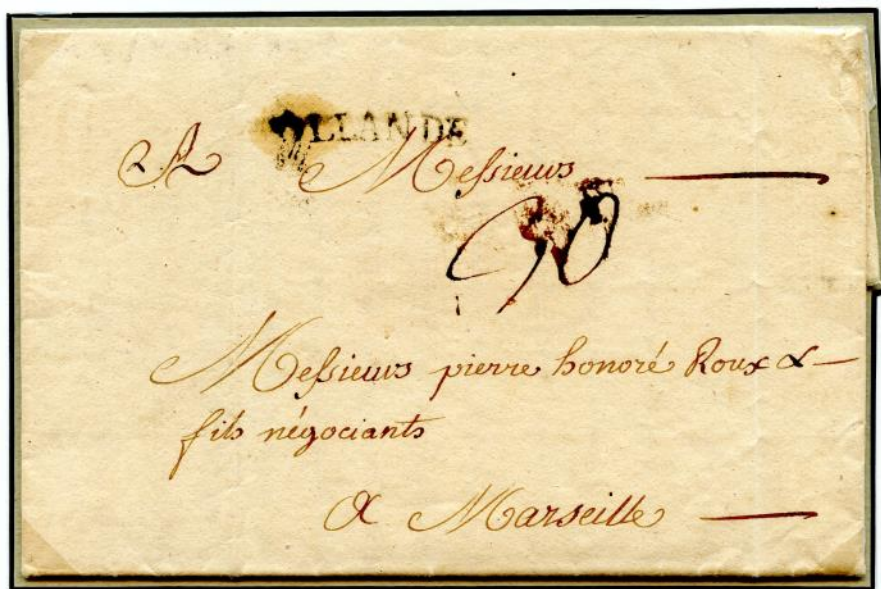 OLLANDE
A Messieurs
Messieurs pierre honoré Roux &
fils négociants
A Marseille